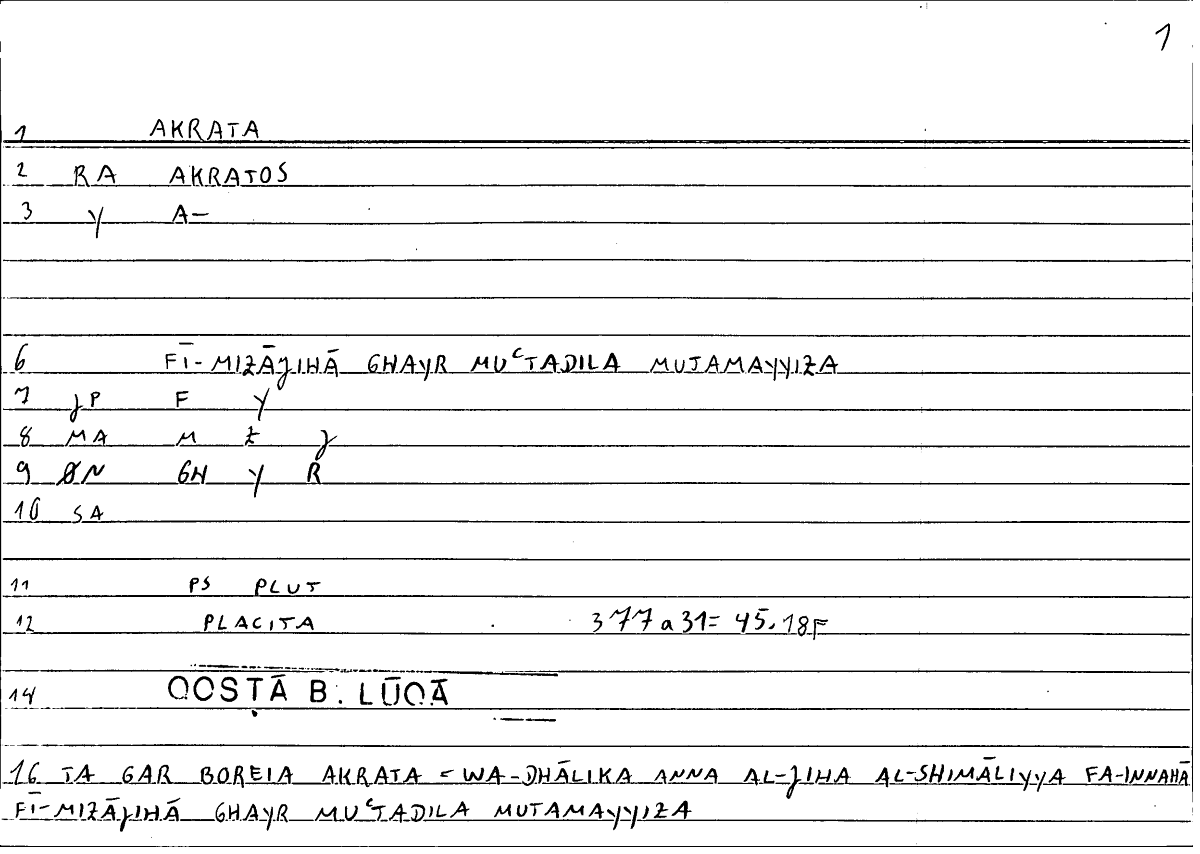 1
1 AKRATA
2 RA AKRATOS
3 Y A-
6 FĪ-MIZĀJIHĀ GHAYR MUʿTADILA MUTAMAYYIZA
7 JP F Y
8 MA M Z J
9 ØN GH Y R
10 SA
11 PS PLUT
12 PLACITA 377a31= 45,18F
14 QOSṬĀ B. LŪQĀ
16 TA GAR BOREIA AKRATA = WA-DHĀLIKA ANNA AL-JIHA AL-SHIMĀLIYYA FA-INNAHĀ
FĪ-MIZĀJIHĀ GHAYR MUʿTADILA MUTAMAYYIZA